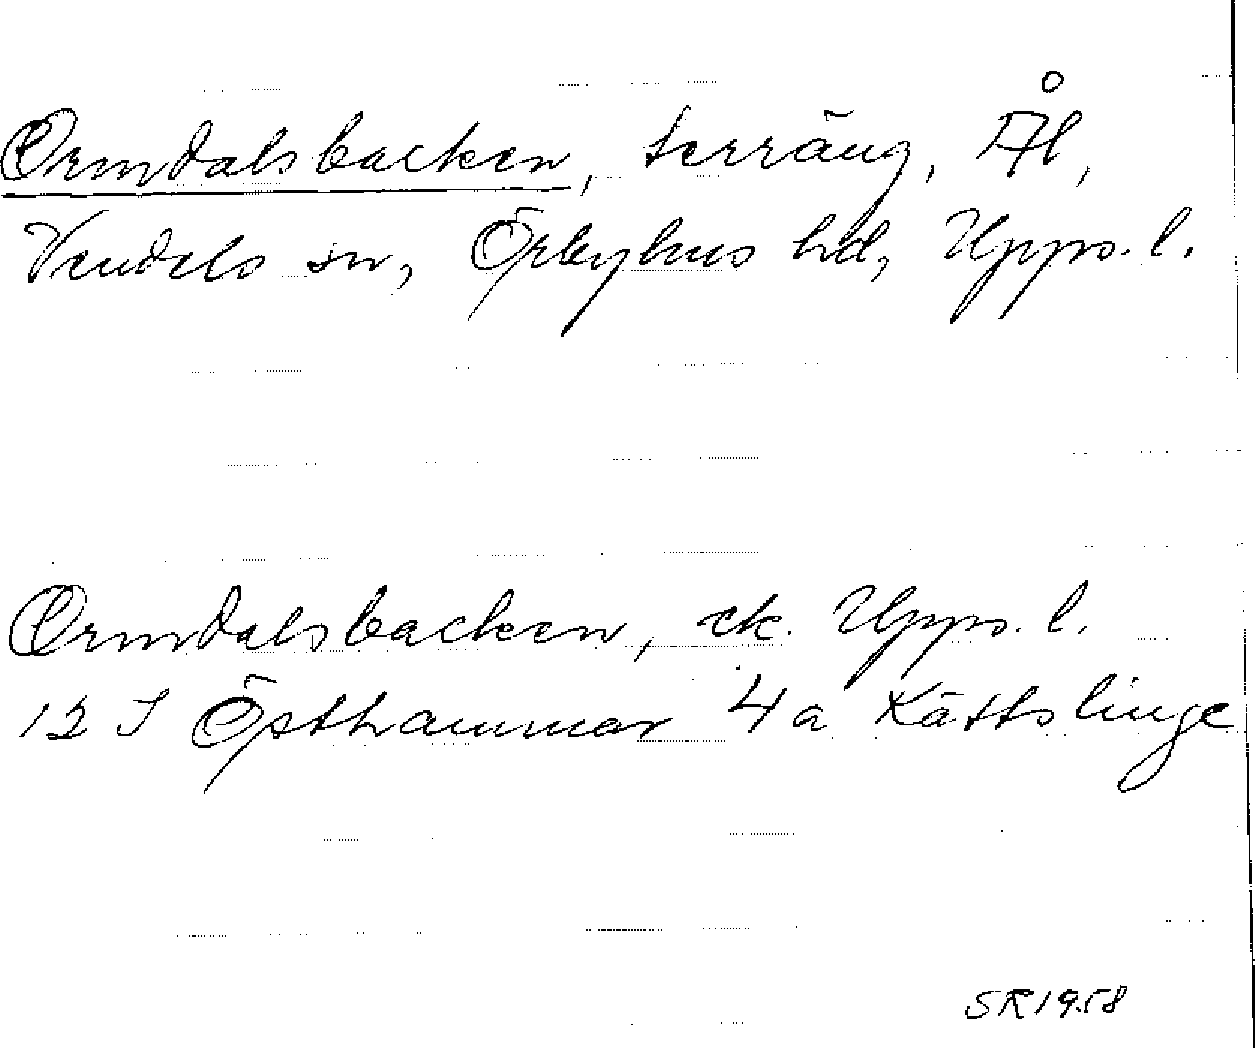 Ormdalsbacken, terräng, Ål,
Vendels sn, Örbyhus hd, Upps. l.
Ormdalsbacken, ek. Upps. l.
12 I Östhammar 4a Kättslinge
SR 1958